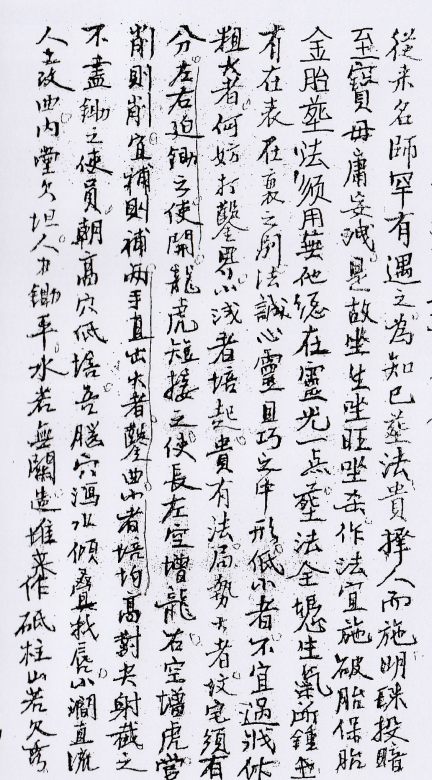 從来名師罕有遇之為知已塟法貴擇人而施明珠投暗
至寶毋庸妄洩是故坐生坐旺坐杀作法宜施破胎保胎
金胎塟法須用無他總在靈光一点塟法全憑生氣所鍾
有在表在裏之別法誠心靈目巧之中形低小者不宜過
粗大者何妨打鑿界水浅者培起貴有法局勢大者坟宅須有
分左右迫鋤之使開龍虎短接之使長左空增龍右空增虎當
削則削宜補則補兩手直出大者鑿曲小者培均高對尖射截之
不盡鋤之使員朝高穴低培吾腦穴瀉水傾疊找唇小澗直流
人立改曲内堂欠坦人力鋤平水若無關造堆來作砥柱山若欠